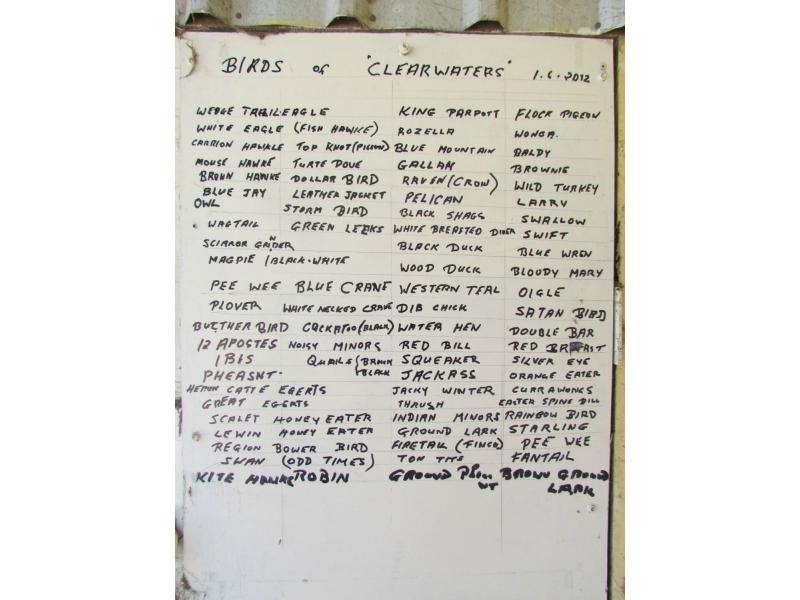 BIRDS of "CLEARWATERS" 1.6.2012
WEDGE TAIL EAGLE KING PARPOTT FLOCK PIGEON
WHITE EAGLE (FISH HAWKE) ROZELLA WONGA.
CARRION HAWKLE TOP KNOT (PIGEON) BLUE MOUNTAIN BALDY
MOUSE HAWKE TURTE DOVE GALLAH BROWNIE
BROWN HAWKE DOLLAR BIRD RAVEN (CROW) WILD TURKEY
BLUE JAY LEATHER JACKET PELICAN LARRY
OWL STORM BIRD BLACK SHAGS SWALLOW
WAGTAIL GREEN LEEKS WHITE BREASTED DIVER SWIFT
SCIRROR GRINDER BLACK DUCK BLUE WREN
MAGPIE / BLACK-WHITE WOOD DUCK BLOODY MARY
PEE WEE BLUE CRANE WESTERN TEAL OIGLE
PLOVER WHITE NECKED CRANE DIB CHICK SATAN BIRD
BUTTHER BIRD COCKATOO (BLACK) WATER HEN DOUBLE BAR
12 APOSTES NOISY MINORS RED BILL RED BREAST
IBIS QUAILS (BROWN SQUEAKER SILVER EYE
PHEASNT. BLACK JACKASS ORANGE EATER
HERON CATTE EGERTS JACKY WINTER CURRAWONGS
GREAT EGERTS THRUSH EASTER SPINE BILL
SCALET HONEY EATER INDIAN MINORS RAINBOW BIRD
LEWIN HONEY EATER GROUND LARK STARLING
REGION BOWER BIRD FIRETAIL (FINCH) PEE WEE
SWAN (ODD TIMES) TOM TITS FANTAIL
KITE HAWKE ROBIN GROUND BROWN GROUND
LARK